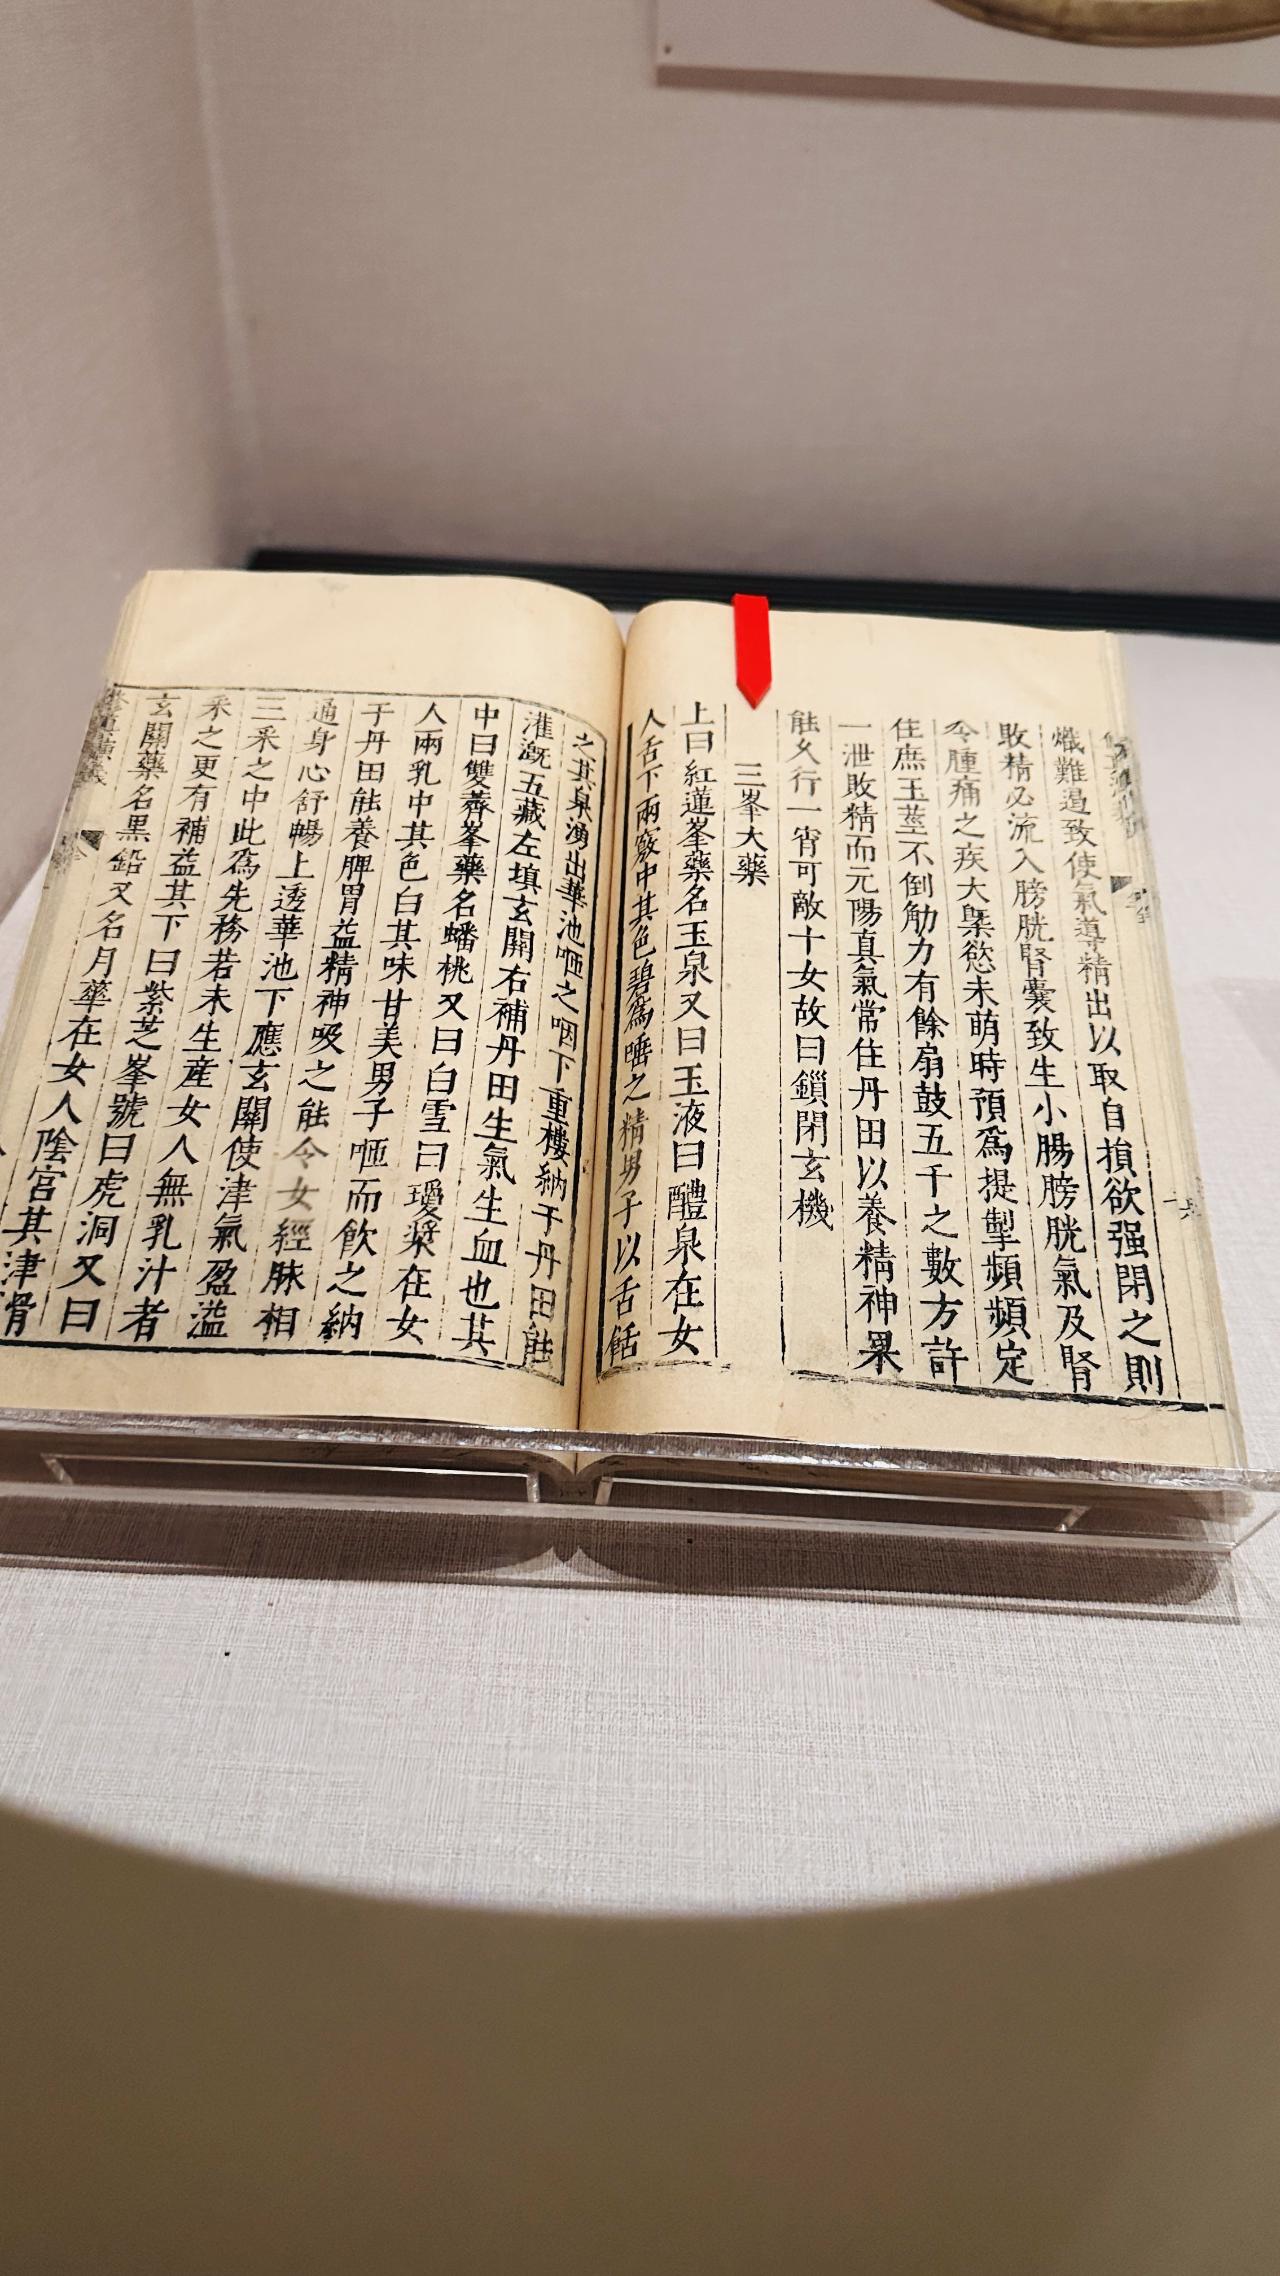 熾難遏致使氣導精出以取自損欲强閉之則
敗精必流入膀胱腎囊致生小腸膀胱氣及腎
令腫痛之疾大槩慾未萌時預爲提掣頻頻定
住庶玉莖不倒觔力有餘扇鼓五千之數方許
一泄敗精而元陽真氣常住丹田以養精神果
能久行一宵可敵十女故曰鎖閉玄機
三峯大藥
上曰紅蓮峯藥名玉泉又曰玉液曰醴泉在女
人舌下兩竅中其色碧爲唾之精男子以舌餂
之其泉湧出華池咂之咽下重樓納于丹田能
灌溉五藏左填玄關右補丹田生氣生血也其
中曰雙薺峯藥名蟠桃又曰白雪曰瓊漿在女
人兩乳中其色白其味甘美男子咂而飲之納
于丹田能養脾胃益精神吸之能令女經脉相
通身心舒暢上透華池下應玄關使津氣盈溢
三采之中此爲先務若未生產女人無乳汁者
采之更有補益其下曰紫芝峯號曰虎洞又曰
玄關藥名黑鉛又名月華在女人陰宮其津骨